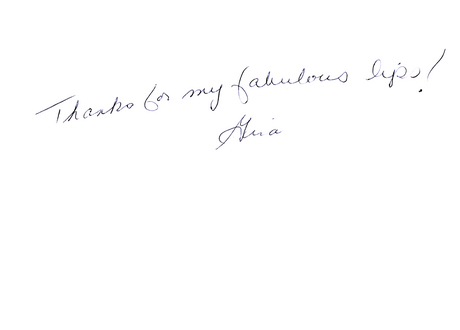 Thanks for my fabulous lips!